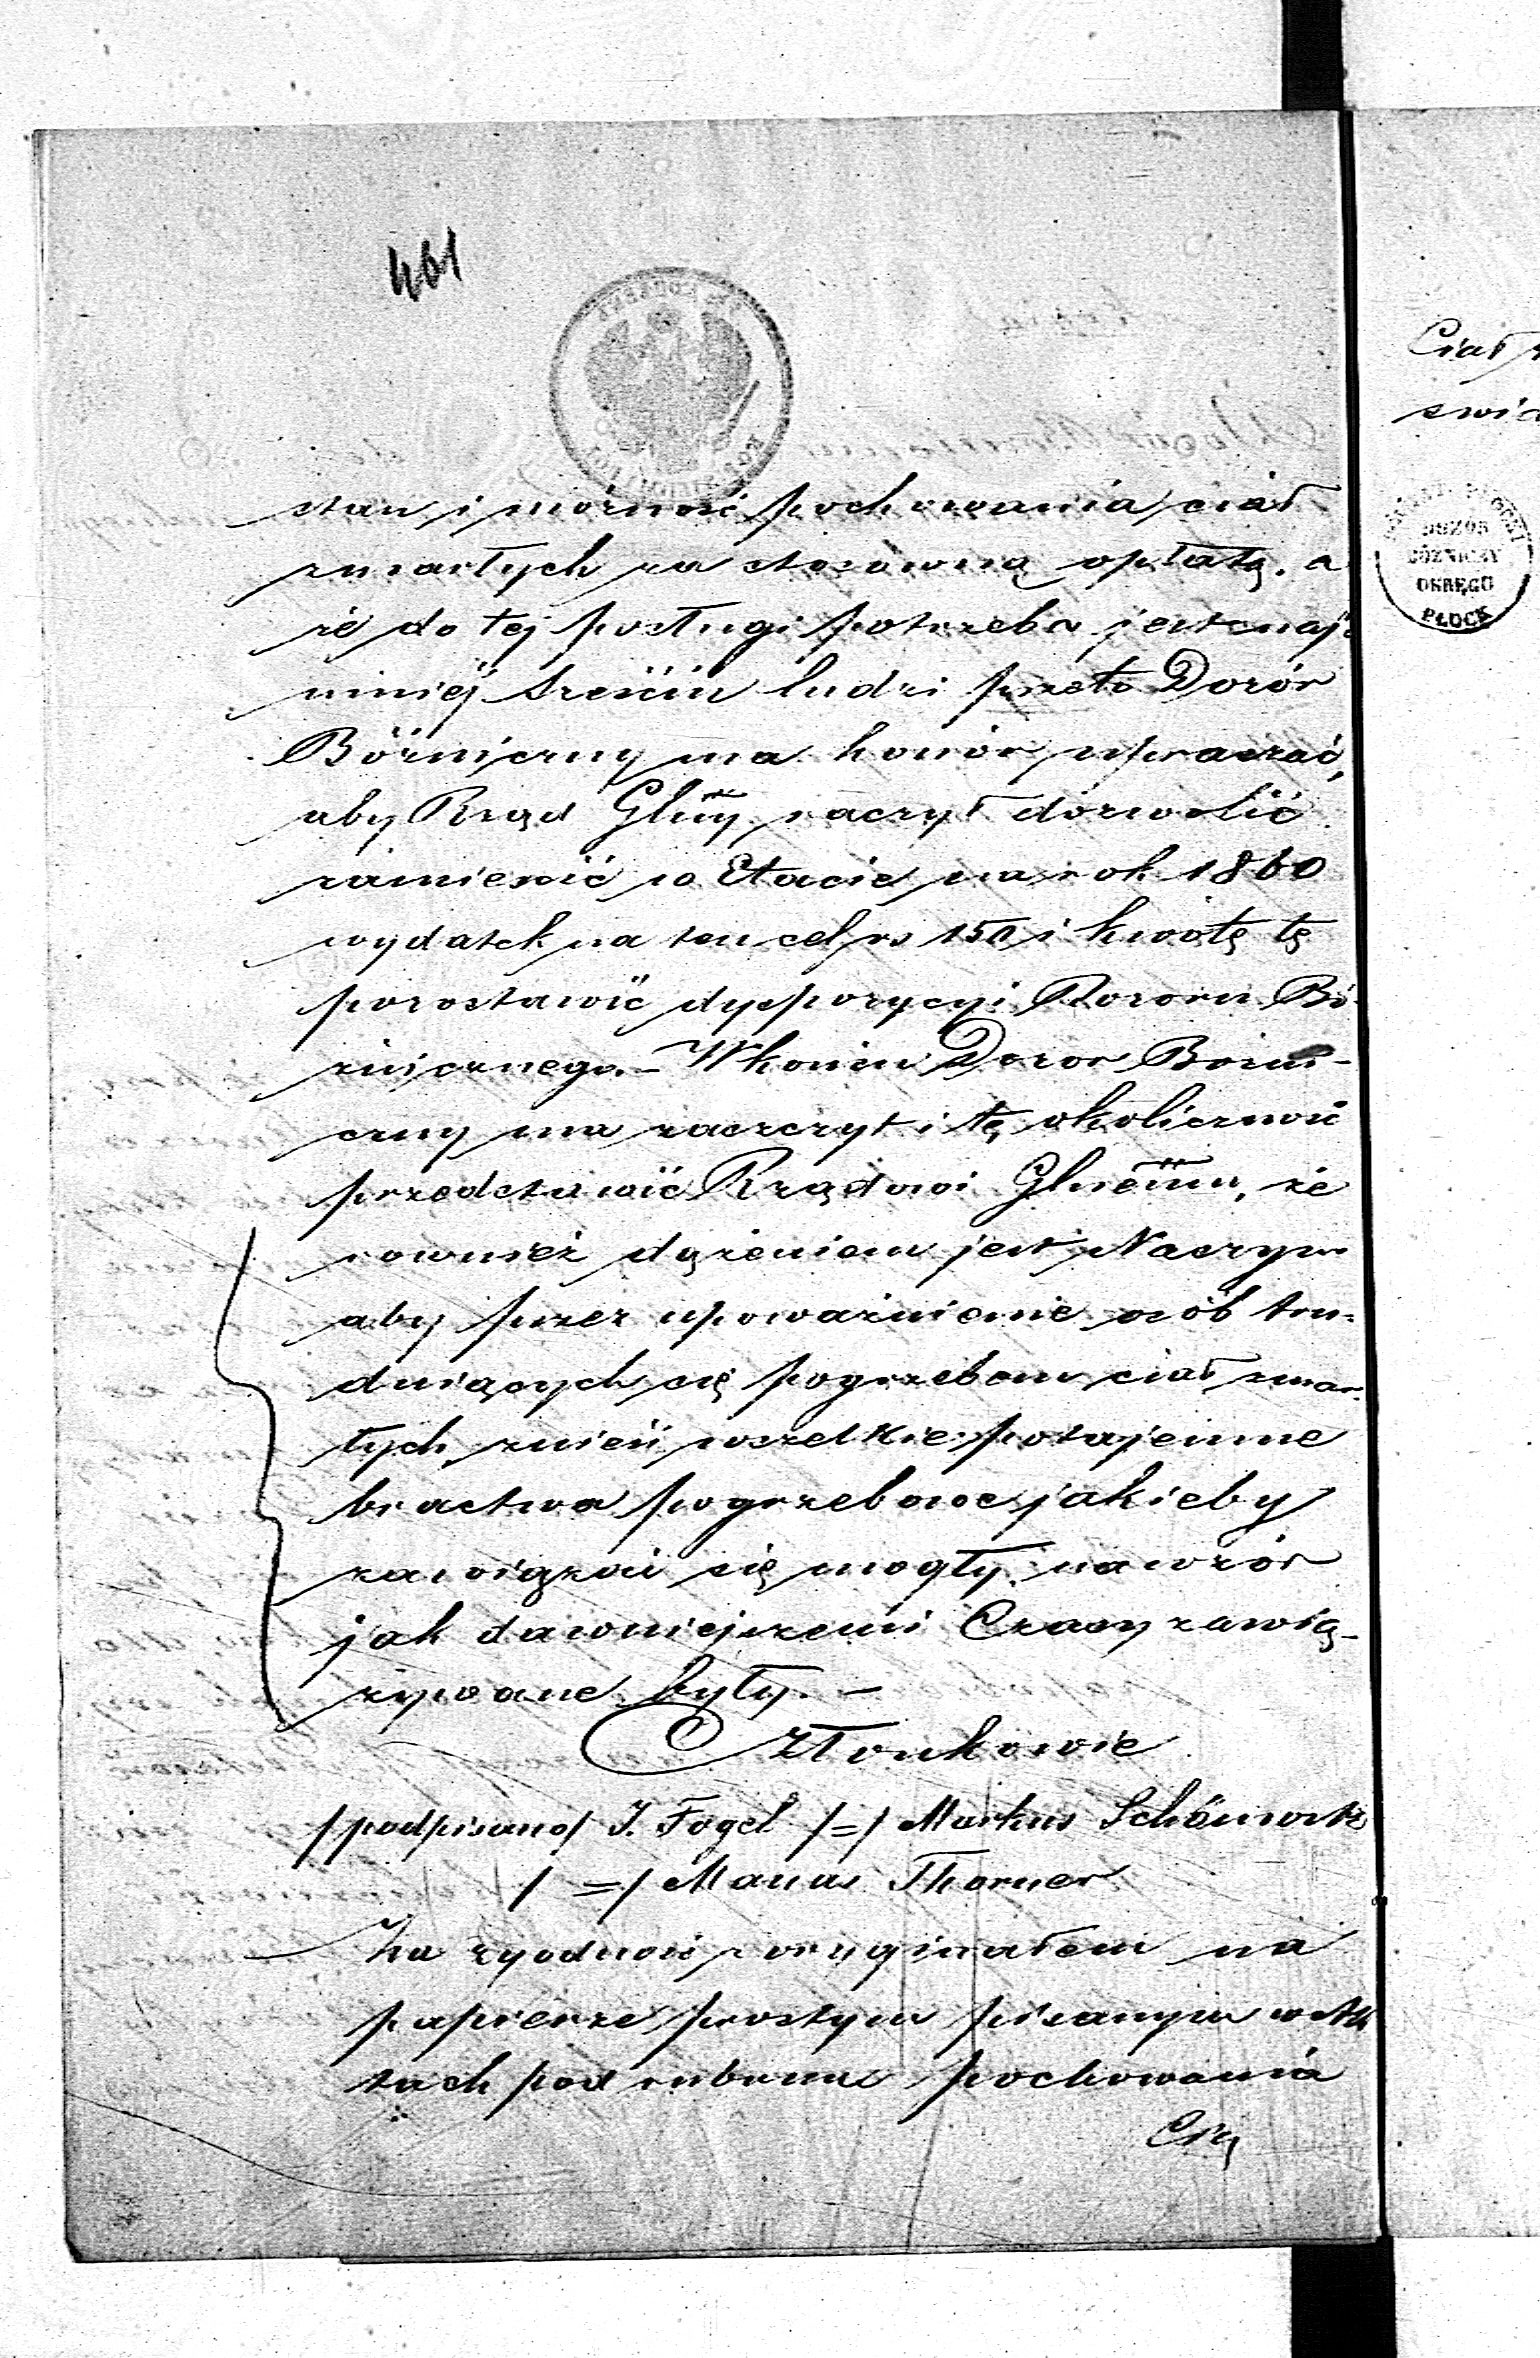 461
stan i możność pochowania ciał
zmarłych za stosowną opłatą. a
że do tej posługi potrzeba jest naj-
mniej sześciu ludzi przeto Dozór
Bóżniczny ma honór upraszać,
aby Rząd Glny raczył dozwolić
zamieścić w Etacie na rok 1860
wydatek na ten cel rs 150 i kwotę tę
pozostawić dyspozycyi Dozoru Bó-
żnicznego. – W końcu Dozór Bożni-
czny ma zaszczyt i tę okoliczność
przedstawić Rządowi Glnemu, że
rownież dążeniem jest Naszym
aby przez upoważnienie osób tru-
dniących się pogrzebem ciał zmar-
łych znieść wszelkie potajemne
bractwa pogrzebowe jakieby
zawiązać się mogły na wzór
jak dawniejszemi Czasy zawią-
zywane były. –
Członkowie
/podpisano/ J. Fogel /=/ Markus Schönwitz
/=/ Manas Thorner
Za zgodność z oryginałem na
papierze prostym pisanym w Ak
tach pod rubrum pochowania
Ciał
DOZÓR
BÓŻNICZY
OKRĘGU
PŁOCK